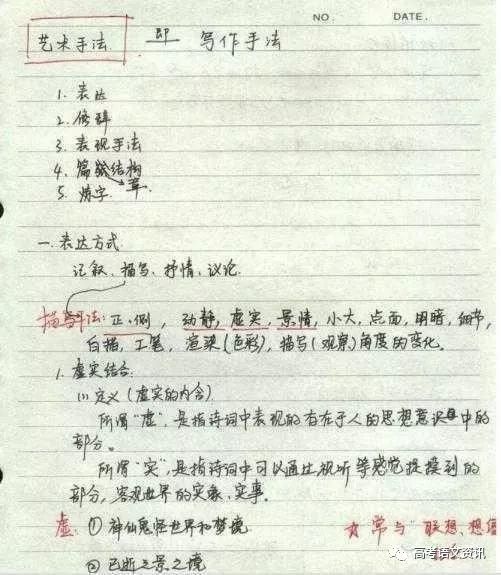 NO. DATE.
艺术手法 即 写作手法
1. 表达
2. 修辞
3. 表现手法
4. 篇章结构
5. 炼字
一. 表达方式
记叙、描写、抒情、议论.
描写手法: 正.侧, 动静, 虚实, 景情, 小大, 点面, 明暗, 细节,
白描, 工笔, 渲染(色彩), 描写(观察)角度的变化.
1. 虚实结合:
(1)定义(虚实的内含)
所谓“虚”, 是指诗词中表现的存在于人的思想意识中的
部分。
所谓“实”, 是指诗词中可以通过视听等感觉捉摸到的
部分, 客观世界的实象、实事。
虚: ① 神仙鬼怪世界和梦境
常与“联想、想
② 已逝之景之境
高考语文资讯